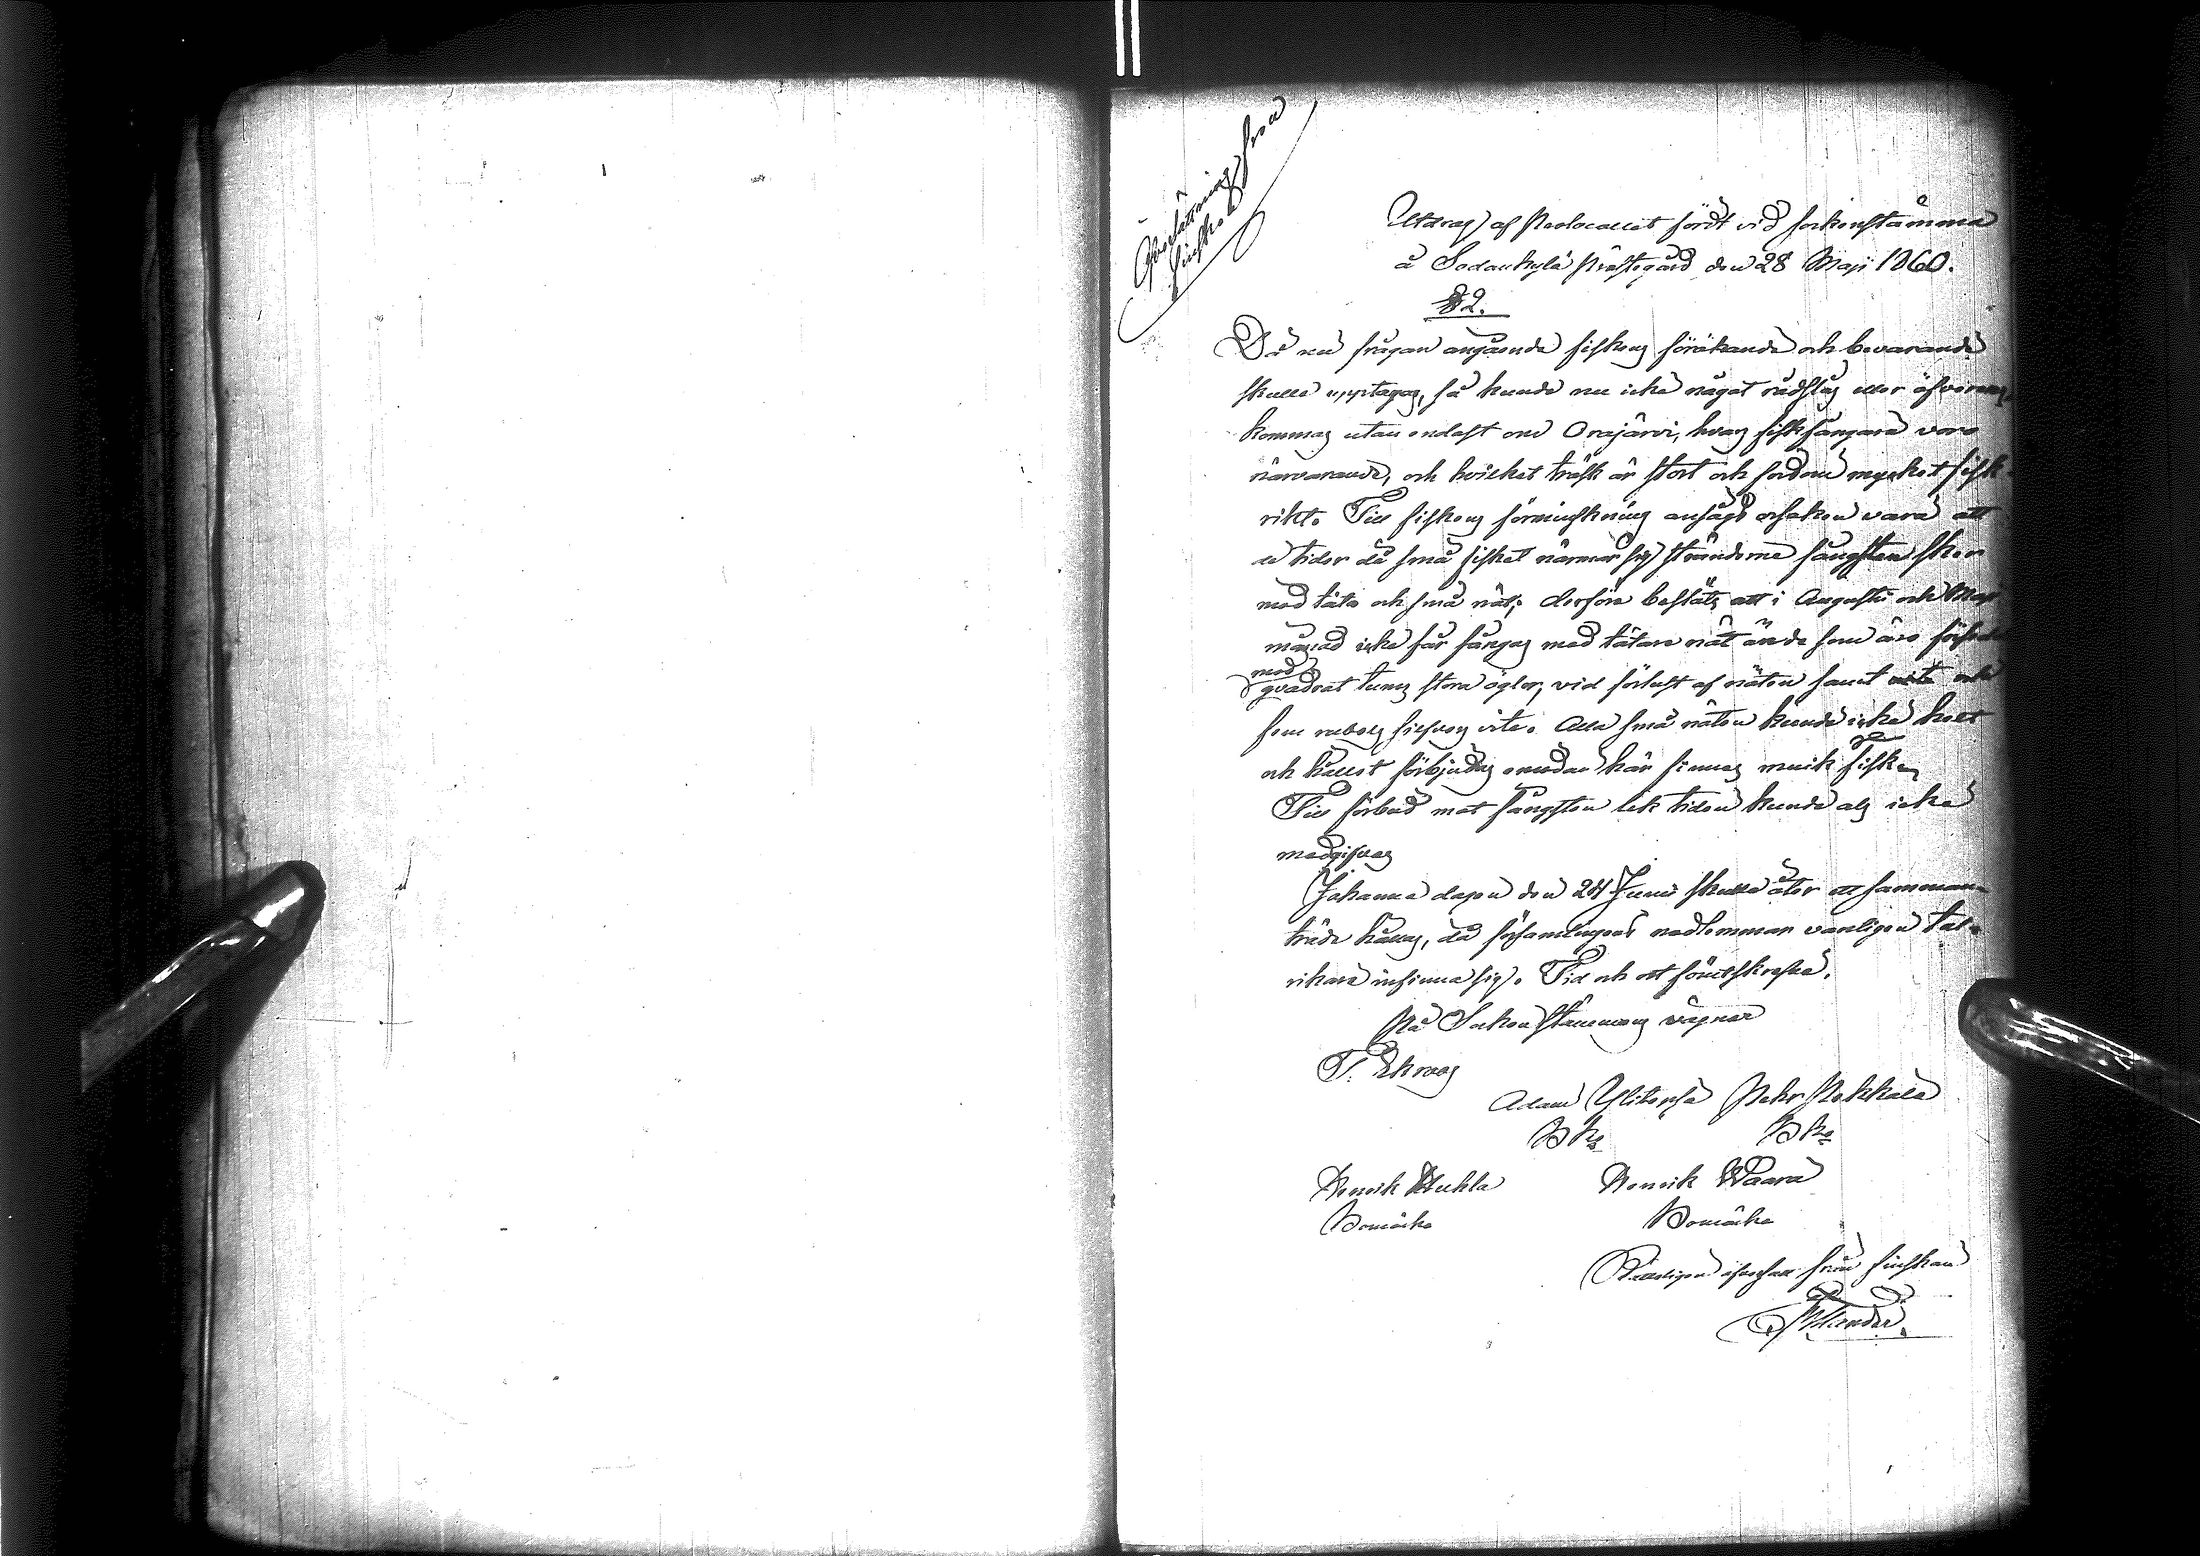 Öfversättning från
finska
Utdrag af Protocollet fördt vid sockenstämma
å Sodankylä Prästegård den 28 Maji 1860.
§ 2.
Då nu frågan angående fiskens förökande och bevarande
skulle upptagas, så kunde nu icke något rådslag eller öfverens
kommas utan endast om Orajärvi, hvars fiskfångare voro
närvarande, och hvilket träsk är stort och fordom mycket fisk
rikt. Till fiskens förminskning ansågs orsaken vara att
de tider då små fisket närmar sig stränderne fångsten sker
med täta och små nät; derföre beslöts att i Augusti och Maji
månad icke får fångas med tätare nät än de som äro försedde
med
qvadrat tums stora öglor, vid förlust af näten samt och
fem rubels silfvers vite. Alla små näten kunde icke helt
och hållet förbjudas emedan här finnas muik fiske
Till förbud mot fångsten lek tiden kunde alls icke
medgifvas
Johanne dagen den 24 Junii skulle åter ett samman-
träde hållas, då församlingens medlemmar vanligen tal-
rikare infinna sig. Tid och ort som förutskrefna.
På Sockenstämmans vägnar
Adam Ylitorsa Pehr Pokkala
Bke Bke
Henrik Kukla Henrik Waara
Bomärke Bomärke
Rätteligen öfversatt från finskan